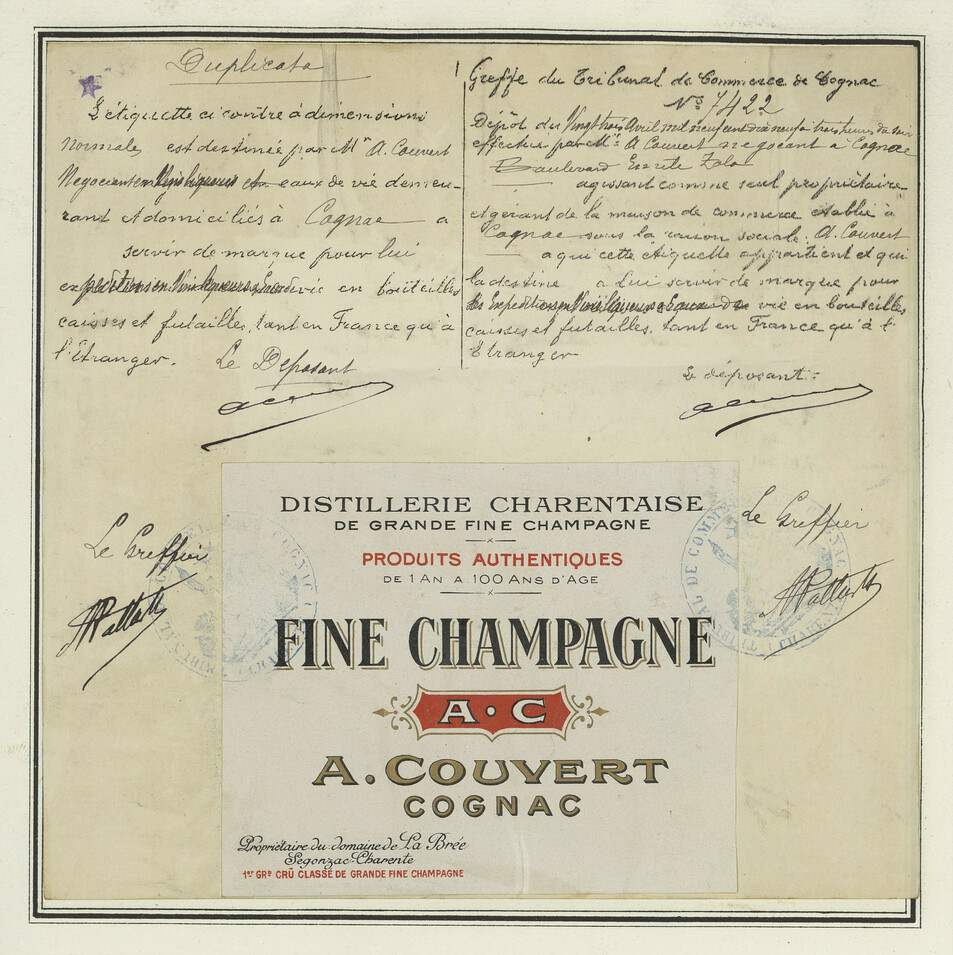 Duplicata
L'étiquette ci contre à dimensions
normales est destinée par Mr A. Couvert
Negociant en eaux de vie demeu-
rant et domiciliés à Cognac a
servir de marque pour lui
vie en bouteilles
caisses et futailles, tant en France qu'à
l'Etranger. Le Déposant
Greffe du Tribunal de Commerce de Cognac
No 7422
Dépôt du Vingt trois Avril mil neuf cent dix neuf à trois heures du soir
effectué par Mr A Couvert negociant à Cognac
Boulevard Emile Zola
agissant comme seul propriétaire
et gérant de la maison de commerce établie à
Cognac sous la raison sociale: A. Couvert
a qui cette étiquette appartient et qui
la destine a lui servir de marque pour
vie en bouteilles
caisses et futailles, tant en France qu'à l'
Etranger
Le déposant:
Le Greffier
Le Greffier
TRIBUNAL DE COMMERCE COGNAC
DISTILLERIE CHARENTAISE
DE GRANDE FINE CHAMPAGNE
PRODUITS AUTHENTIQUES
DE 1 AN A 100 ANS D'AGE
FINE CHAMPAGNE
A·C
A. COUVERT
COGNAC
Propriétaire du domaine de La Brée
Segonzac-Charente
1er GRD CRÛ CLASSÉ DE GRANDE FINE CHAMPAGNE